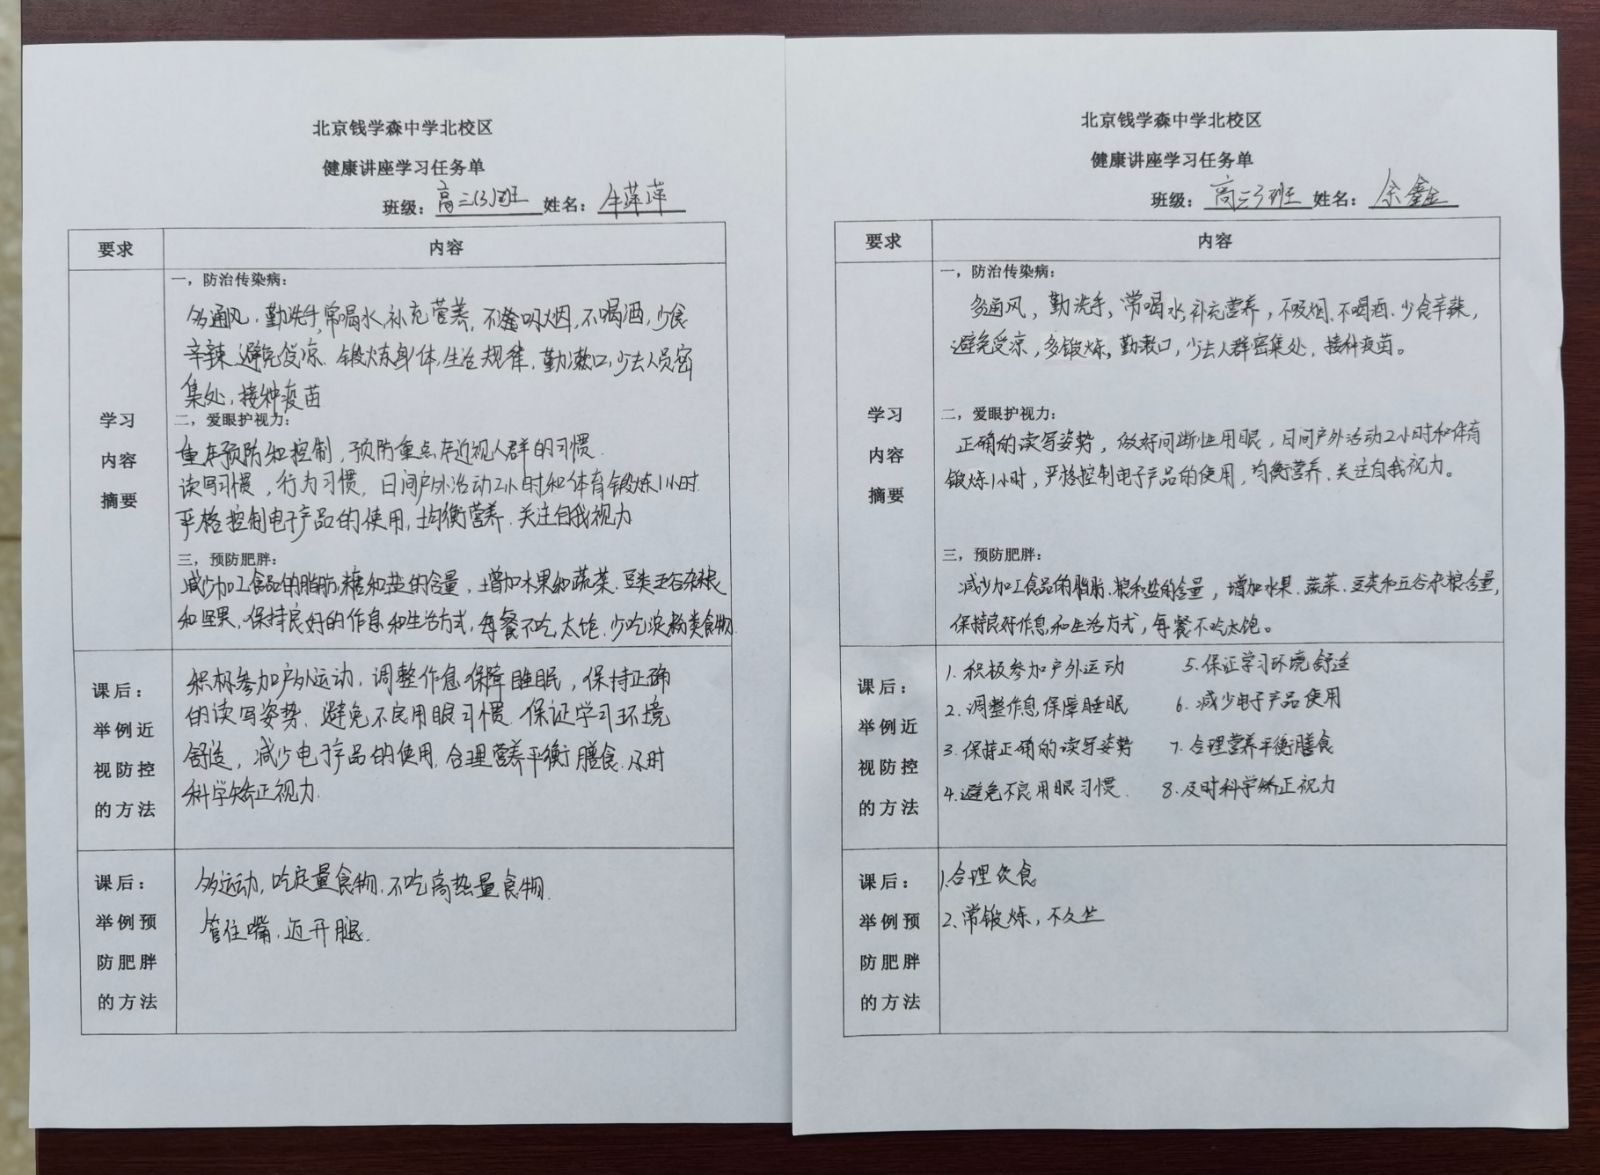 北京钱学森中学北校区
健康讲座学习任务单
班级：高三(3)班 姓名：牛萍萍
要求 内容
学习
内容
摘要
一，防治传染病：
多通风，勤洗手，常喝水，补充营养，不吸烟，不喝酒，少食
辛辣，避免受凉，锻炼身体，生活规律，勤漱口，少去人员密
集处，接种疫苗
二，爱眼护视力：
重在预防和控制，预防重点在近视人群的习惯.
读写习惯，行为习惯，日间户外活动2小时和体育锻炼1小时.
严格控制电子产品的使用，均衡营养，关注自我视力
三，预防肥胖：
减少加工食品的脂肪，糖和盐的含量，增加水果和蔬菜、豆类五谷杂粮
和坚果，保持良好的作息和生活方式，每餐不吃太饱，少吃淀粉类食物.
课后：
举例近
视防控
的方法
积极参加户外运动，调整作息保障睡眠，保持正确
的读写姿势，避免不良用眼习惯，保证学习环境
舒适，减少电子产品的使用，合理营养平衡膳食，及时
科学矫正视力.
课后：
举例预
防肥胖
的方法
多运动，吃定量食物，不吃高热量食物.
管住嘴，迈开腿.
北京钱学森中学北校区
健康讲座学习任务单
班级：高三3班 姓名：余鑫
要求 内容
学习
内容
摘要
一，防治传染病：
多通风，勤洗手，常喝水，补充营养，不吸烟、不喝酒，少食辛辣，
避免受凉，多锻炼，勤漱口，少去人群密集处，接种疫苗。
二，爱眼护视力：
正确的读写姿势，做好间断性用眼，日间户外活动2小时和体育
锻炼1小时，严格控制电子产品的使用，均衡营养、关注自我视力。
三，预防肥胖：
减少加工食品的脂肪、糖和盐的含量，增加水果、蔬菜、豆类和五谷杂粮含量，
保持良好作息和生活方式，每餐不吃太饱。
课后：
举例近
视防控
的方法
1.积极参加户外运动 5.保证学习环境舒适
2.调整作息保障睡眠 6.减少电子产品使用
3.保持正确的读写姿势 7.合理营养平衡膳食
4.避免不良用眼习惯. 8.及时科学矫正视力
课后：
举例预
防肥胖
的方法
1.合理饮食
2.常锻炼，不久坐